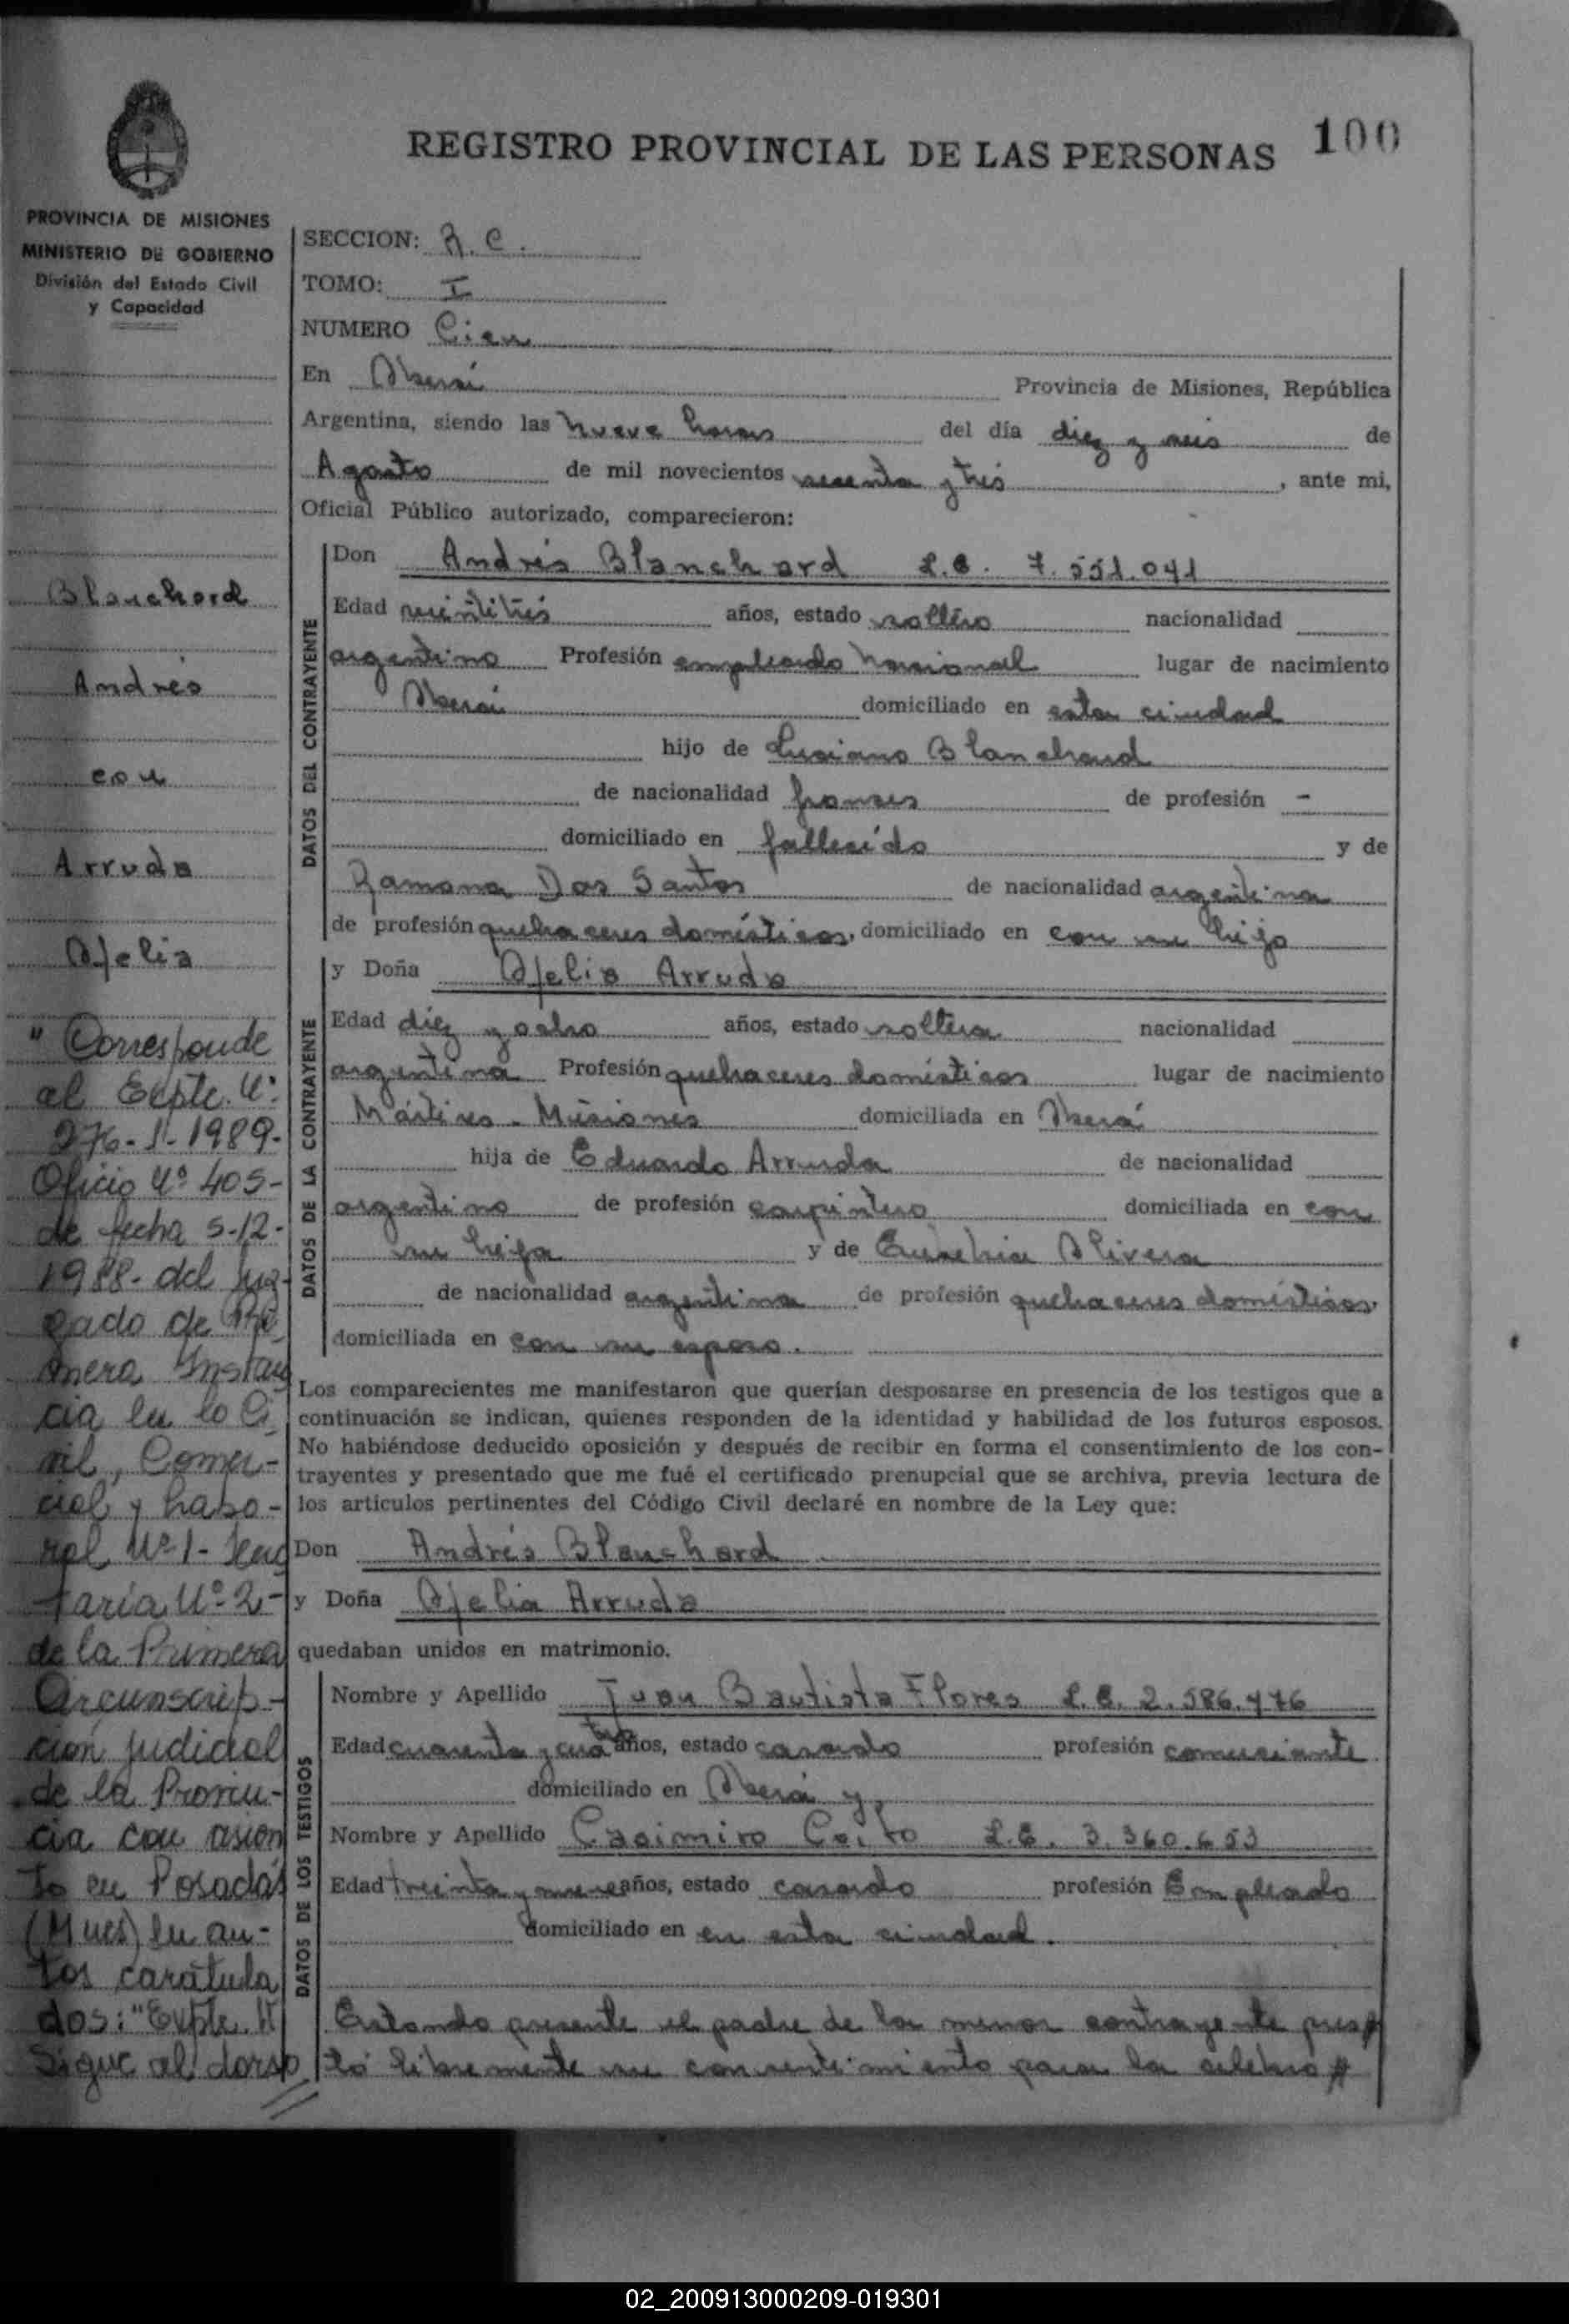 REGISTRO PROVINCIAL DE LAS PERSONAS 100
PROVINCIA DE MISIONES
MINISTERIO DE GOBIERNO
División del Estado Civil
y Capacidad
Blanchard
Andrés
con
Arruda
Ofelia
"Corresponde
al Expte. Nº
276-S-1989-
Oficio Nº 405-
de fecha 5-12-
1988- del Juz-
gado de Pri
mera Instan
cia en lo Ci
vil, Comer-
cial y Labo-
ral Nº 1- Secre
taría Nº 2-
de la Primera
Circunscrip-
ción judicial
de la Provin-
cia con asien
to en Posadas
(Mnes) en au-
tos caratula
dos: "Expte. Nº
Sigue al dorso
SECCION: R. C.
TOMO: I
NUMERO Cien
En Oberá Provincia de Misiones, República
Argentina, siendo las nueve horas del día diez y seis de
Agosto de mil novecientos sesenta y tres, ante mi,
Oficial Público autorizado, comparecieron:
DATOS DEL CONTRAYENTE
Don Andrés Blanchard L.E. 7.551.041
Edad veintitrés años, estado soltero nacionalidad
argentino Profesión empleado nacional lugar de nacimiento
Oberá domiciliado en esta ciudad
hijo de Luciano Blanchard
de nacionalidad frances de profesión -
domiciliado en fallecido y de
Ramona Dos Santos de nacionalidad argentina
de profesión quehaceres domésticos, domiciliado en con su hijo
DATOS DE LA CONTRAYENTE
y Doña Ofelia Arruda
Edad diez y ocho años, estado soltera nacionalidad
argentina Profesión quehaceres domésticos lugar de nacimiento
Mártires - Misiones domiciliada en Oberá
hija de Eduardo Arruda de nacionalidad
argentino de profesión carpintero domiciliada en con
su hija y de Eusebia Olivera
de nacionalidad argentina de profesión quehaceres domésticos
domiciliada en con su esposo.
Los comparecientes me manifestaron que querían desposarse en presencia de los testigos que a
continuación se indican, quienes responden de la identidad y habilidad de los futuros esposos.
No habiéndose deducido oposición y después de recibir en forma el consentimiento de los con-
trayentes y presentado que me fué el certificado prenupcial que se archiva, previa lectura de
los artículos pertinentes del Código Civil declaré en nombre de la Ley que:
Don Andrés Blanchard
y Doña Ofelia Arruda
quedaban unidos en matrimonio.
DATOS DE LOS TESTIGOS
Nombre y Apellido Juan Bautista Flores L.E. 2.586.476
Edad cuarenta y cuatro años, estado casado profesión comerciante
domiciliado en Oberá y
Nombre y Apellido Casimiro Coito L.E. 3.360.653
Edad treinta y nueve años, estado casado profesión Empleado
domiciliado en en esta ciudad.
Estando presente el padre de la menor contrayente pres
tó libremente su consentimiento para la celebra
02_200913000209-019301